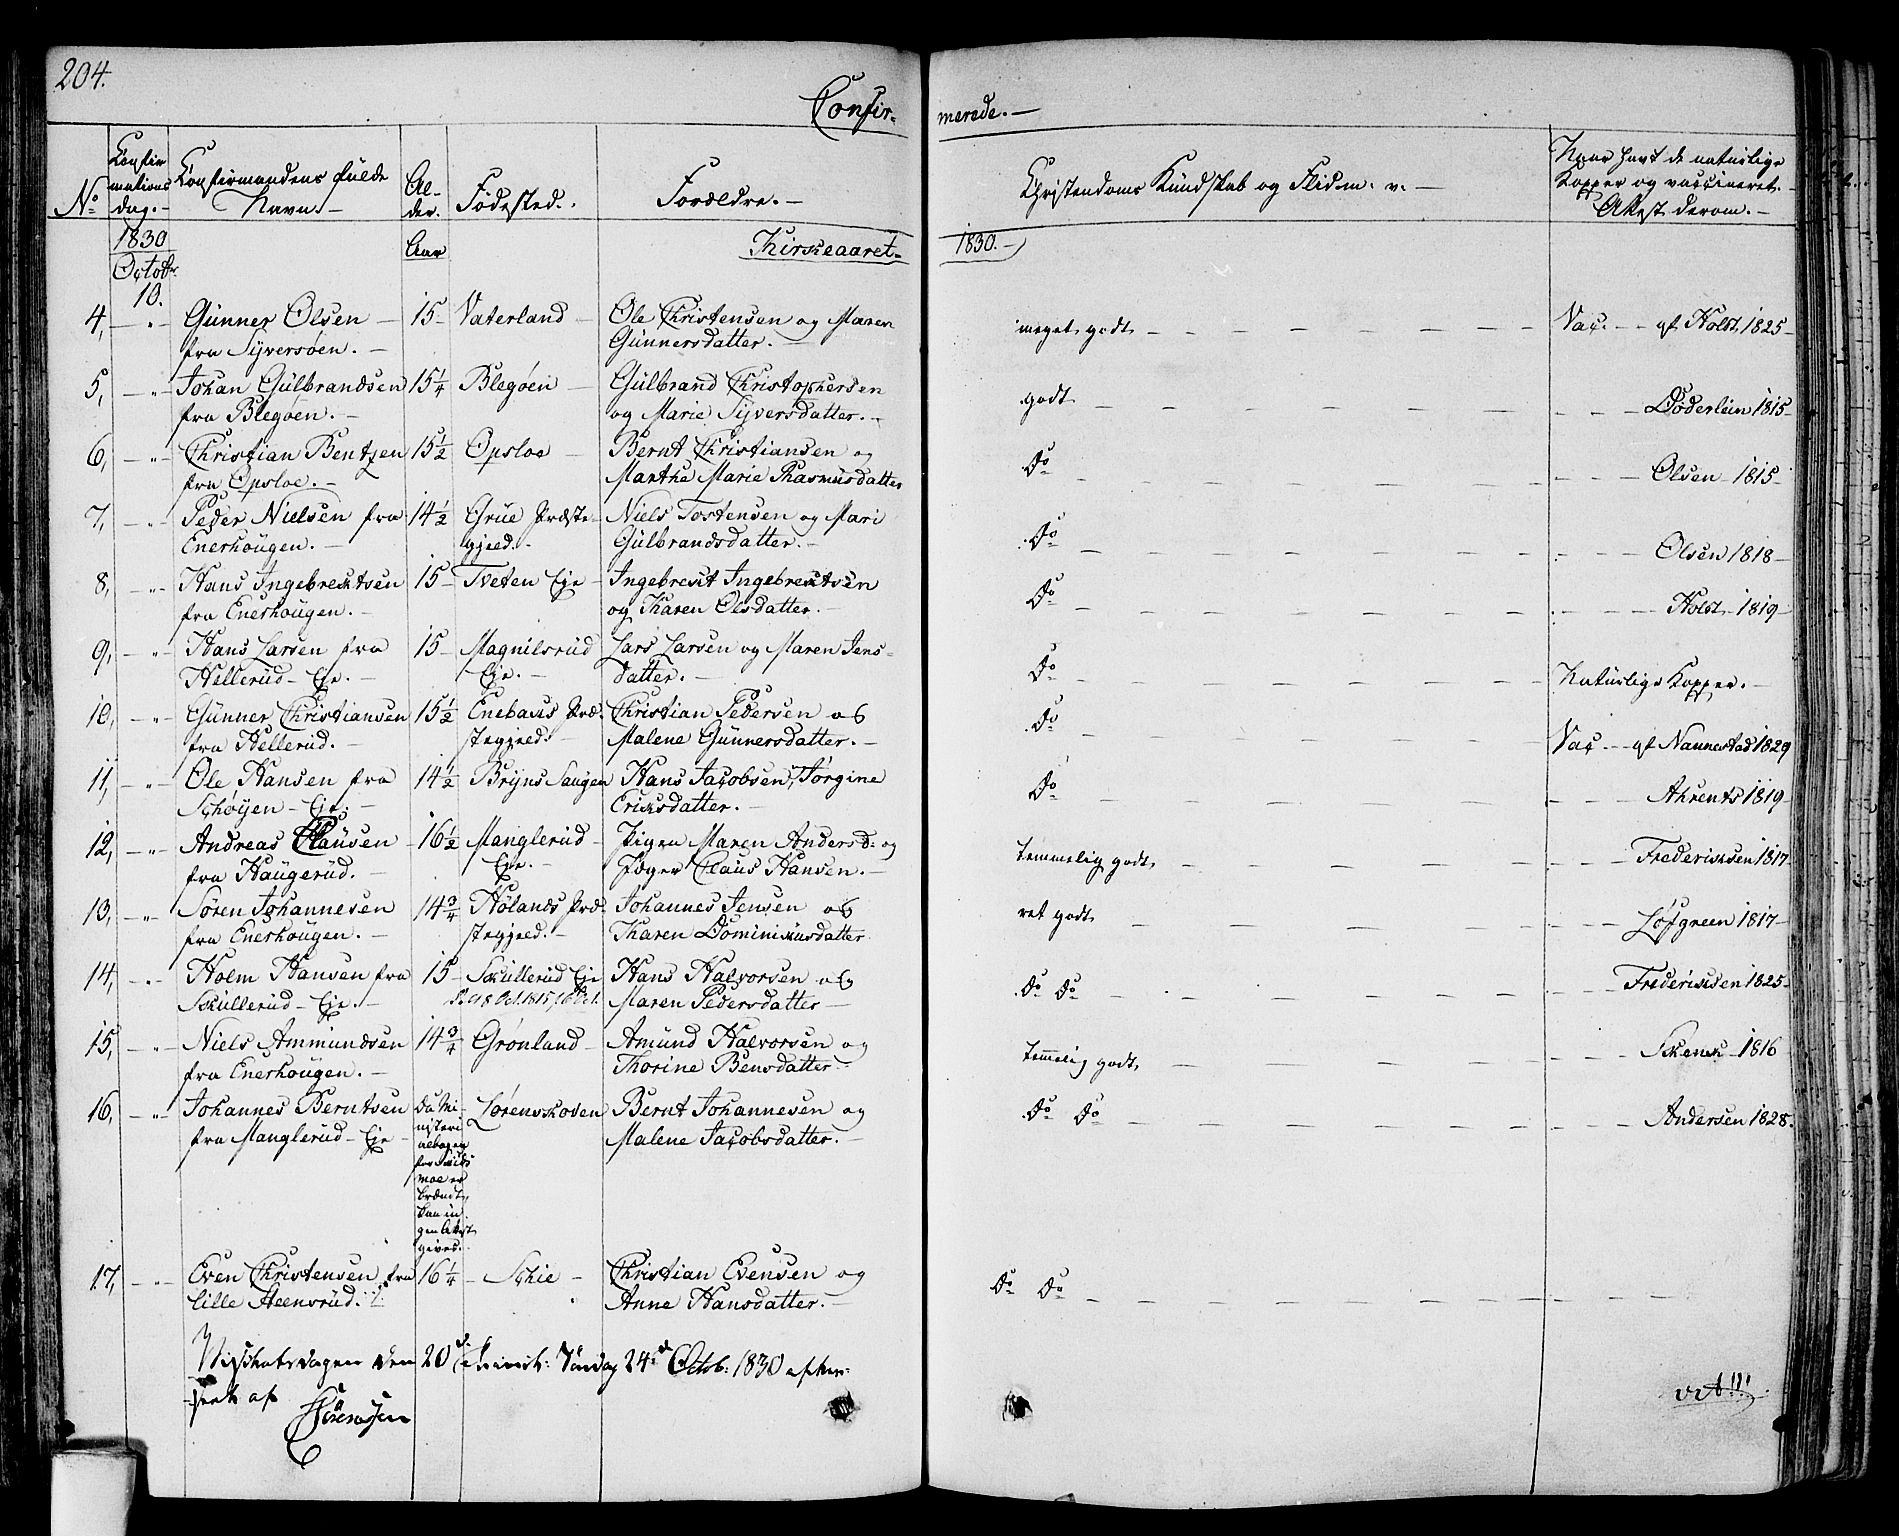 204.
Confir-
merede. —
No
Confir
mations
dag. —
Confirmandens fulde
Navn. —
Al-
der.
Fødested. .
Forældre. —
Christendoms Kundskab og Flid m. v. —
Naar havt de naturlige
Kopper og vaccineret.
Attest derom. —
1830
Octobr.
10.
Aar
Kirkeaaret
1830. —
4, — " — Gunner Olsen — 15 — Vaterland — Ole Christensen og Maren meget godt — Vac. — af Holst 1825
fra Syversøen. — Gunnersdatter. —
5, — " — Johan Gulbrandsen 15 1/4 Blegøen — Gulbrand Christophersen godt — Døderlein 1815
fra Blegøen. — og Marie Syversdatter. —
6, — " — Christian Bentzen 15 1/2 Opsloe — Bernt Christiansen og Do — Olsen 1815
fra Opsloe. — Marthe Marie Rasmusdatter
7, — " — Peder Nielsen fra 14 1/2 Grue Præste- Niels Tostensen og Mari Do — Olsen 1818
Enerhougen. — gjeld. — Gulbrandsdatter. —
8, — " — Hans Ingebrecktsen 15 — Tveten Eje — Ingebrect Ingebrecktsen Do — Holst 1819
fra Enerhougen. — og Karen Olsdatter. —
9, — " — Hans Larsen fra 15 — Magnilsrud Lars Larsen og Maren Jens- Do — Naturlige Kopper. —
Hellerud — Eje. — Eje. — datter. —
10, — " — Gunner Christiansen 15 1/2 Enebacks Præ- Christian Pedersen og Do — Vac. — af Nannestad 1829
fra Hellerud. — stegjeld. — Malene Gunnersdatter. —
11, — " — Ole Hansen fra 14 1/2 Bryns Saugen Hans Jacobsen, Jørgine Do — Ahrents 1819
Schøyen — Eje. — Ericksdatter. —
12, — " — Andreas Clausen — 16 1/2 Manglerud — Pigen Maren Andersd: og temmelig godt, — Frederiksen 1817
fra Haugerud. — Eje. — Claus Hansen. —
13, — " — Søren Johannesen 14 3/4 Hølands Præ- Johannes Jensen og ret godt, — Løfgreen 1817
fra Enerhougen. — stegjeld. — Karen Dominikusdatter
14, — " — Holm Hansen fra 15 — Skullerud Eje Hans Halvorsen og Do Do — Frederiksen 1825
Skullerud — Eje. — Maren Pedersdatter —
15, — " — Niels Ammundsen 14 3/4 Grønland — Amund Halvorsen og temmelig godt, — Skenck 1816
fra Enerhougen. — Thorine Bensdatter —
16, — " — Johannes Berntsen da Mi- Lørenskoven Bernt Johannesen og Do Do — Andersen 1828.
fra Manglerud — Eje — nisteri Malene Jacobsdatter. —
albogen
for
moe er
brændt,
kan in
gen Attest
gives. —
17, — " — Even Christensen fra 16 1/4 — Schie — Christian Evensen og Do Do —
lille Steensrud. Anne Hansdatter. —
den 20d. Søndag 24d Octob: 1830
af
Sørenssen